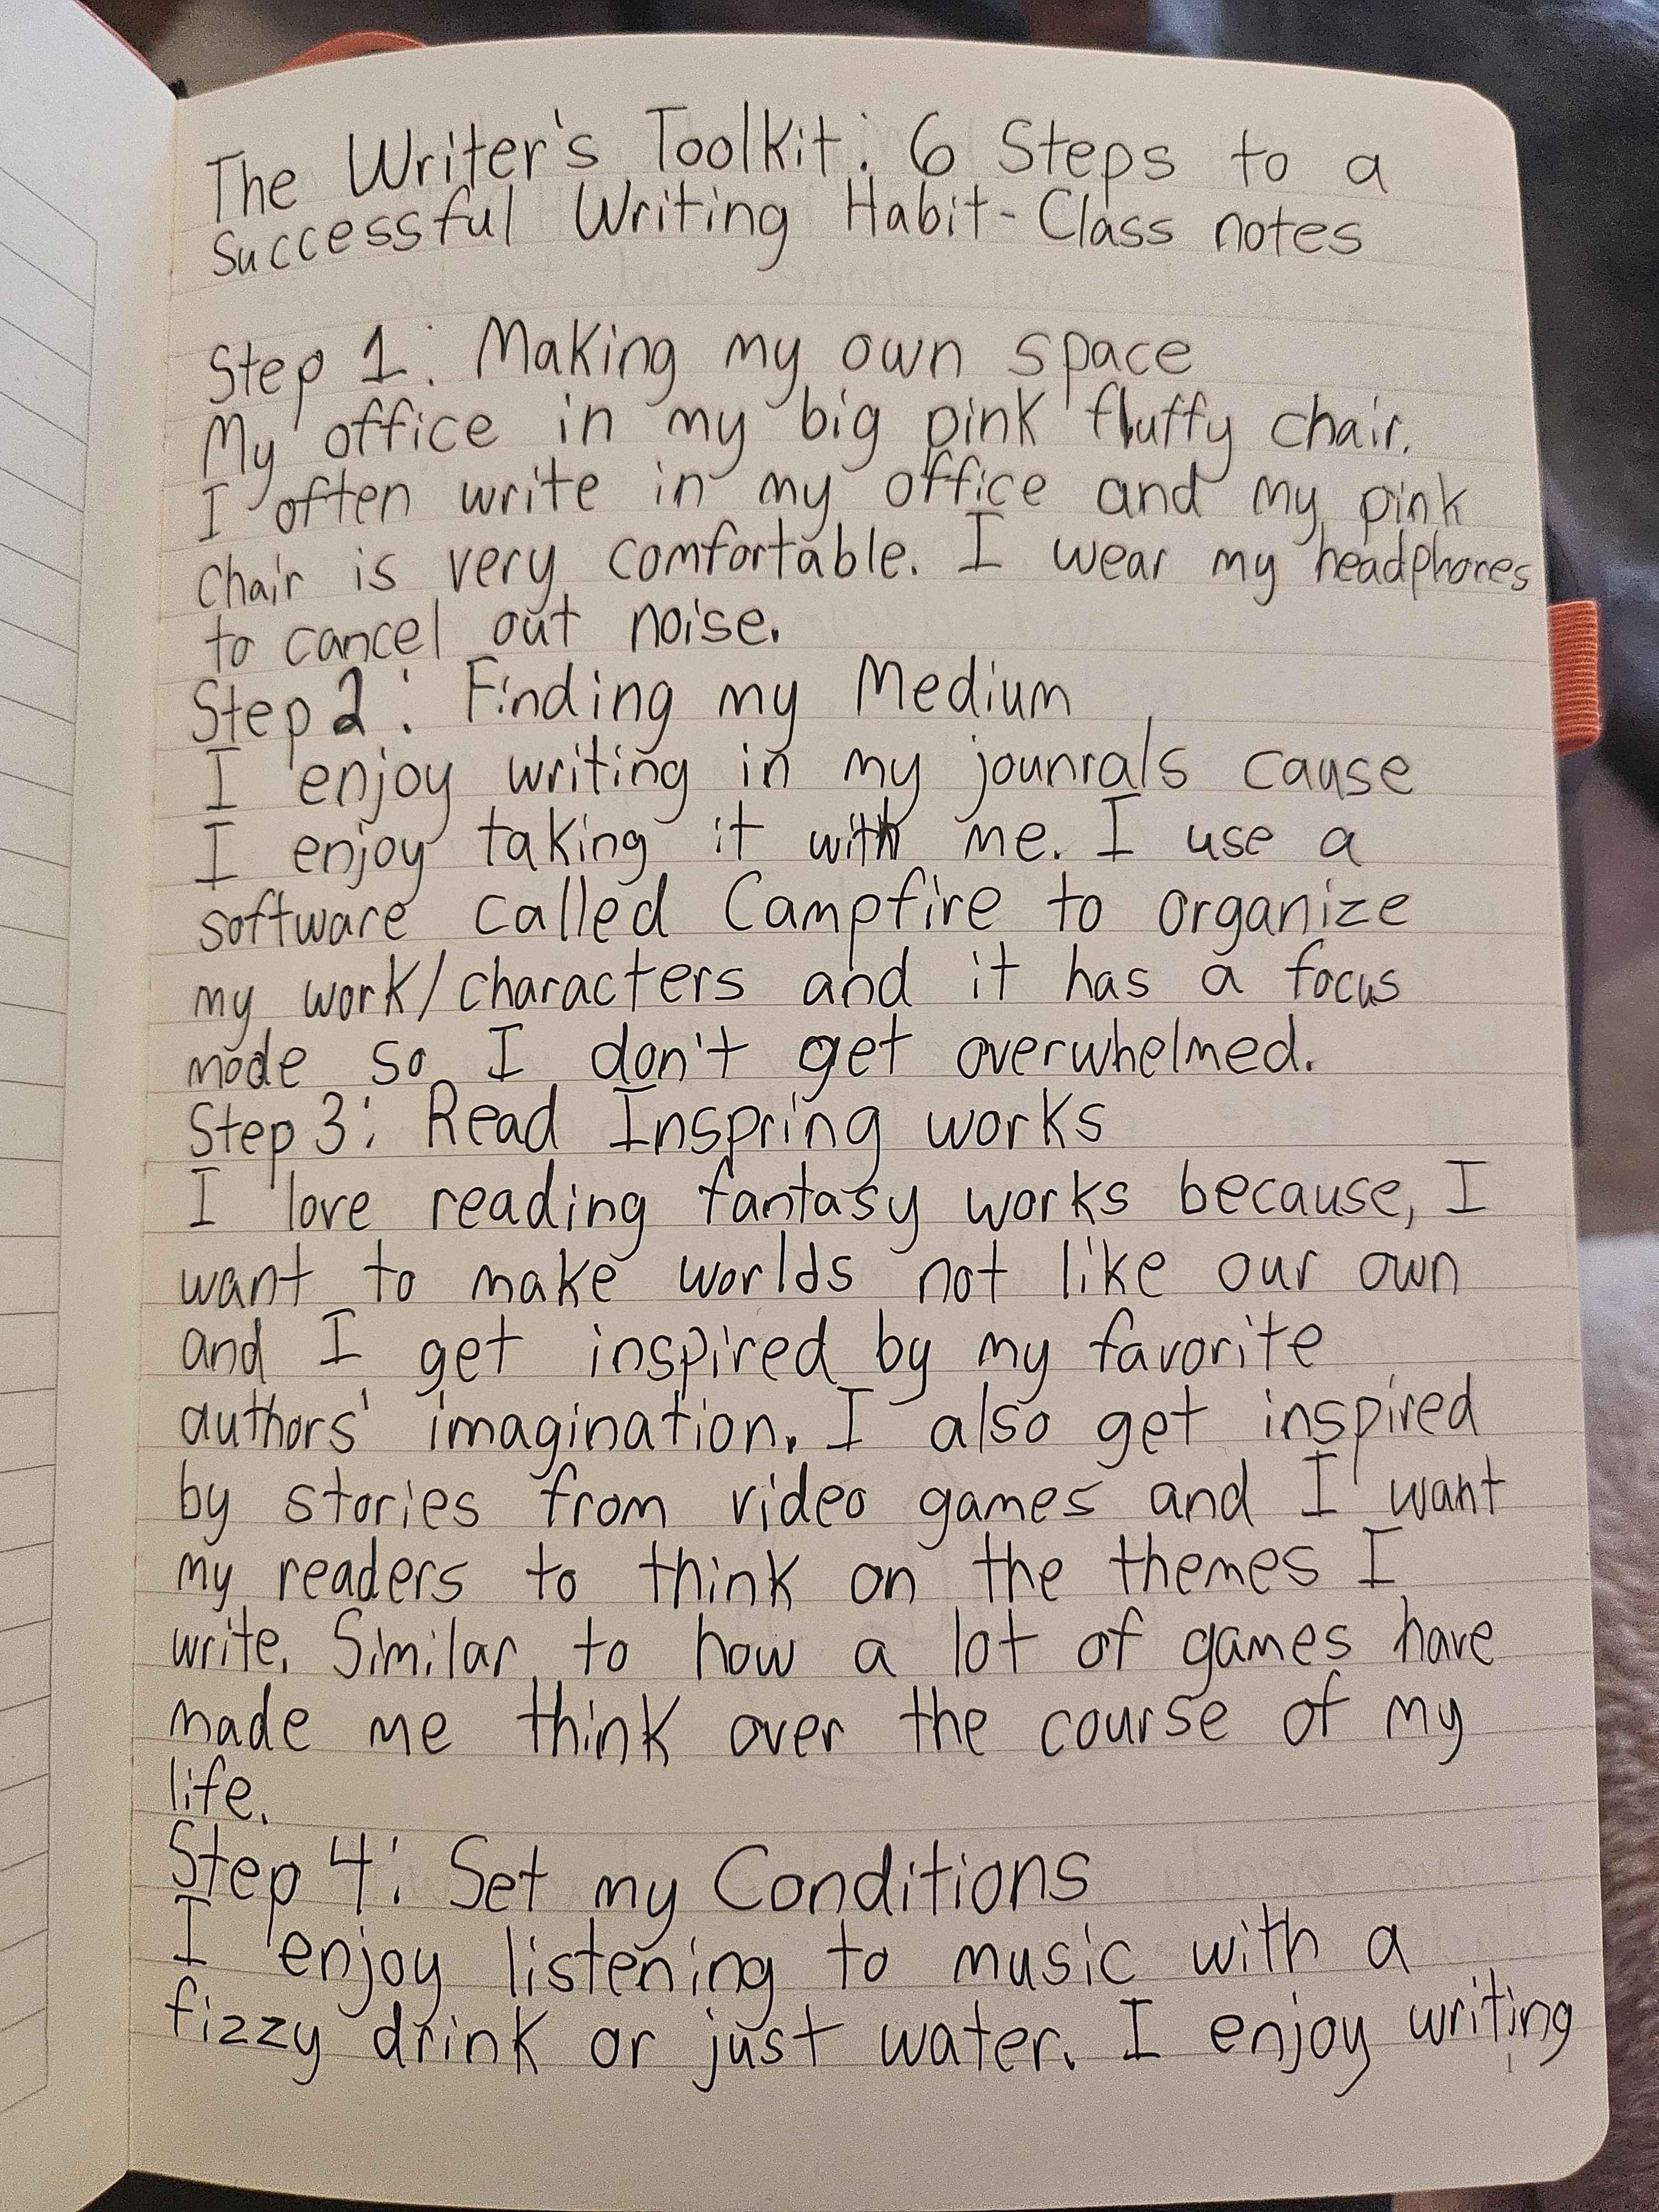 The Writer's Toolkit: 6 Steps to a
Successful Writing Habit - Class notes
Step 1: Making my own space
My office in my big pink fluffy chair.
I often write in my office and my pink
chair is very comfortable. I wear my headphones
to cancel out noise.
Step 2: Finding my Medium
I enjoy writing in my jounrals cause
I enjoy taking it with me. I use a
software called Campfire to organize
my work/characters and it has a focus
mode so I don't get overwhelmed.
Step 3: Read Inspring works
I love reading fantasy works because, I
want to make worlds not like our own
and I get inspired by my favorite
authors' imagination. I also get inspired
by stories from video games and I want
my readers to think on the themes I
write. Similar to how a lot of games have
made me think over the course of my
life.
Step 4: Set my Conditions
I enjoy listening to music with a
fizzy drink or just water. I enjoy writing